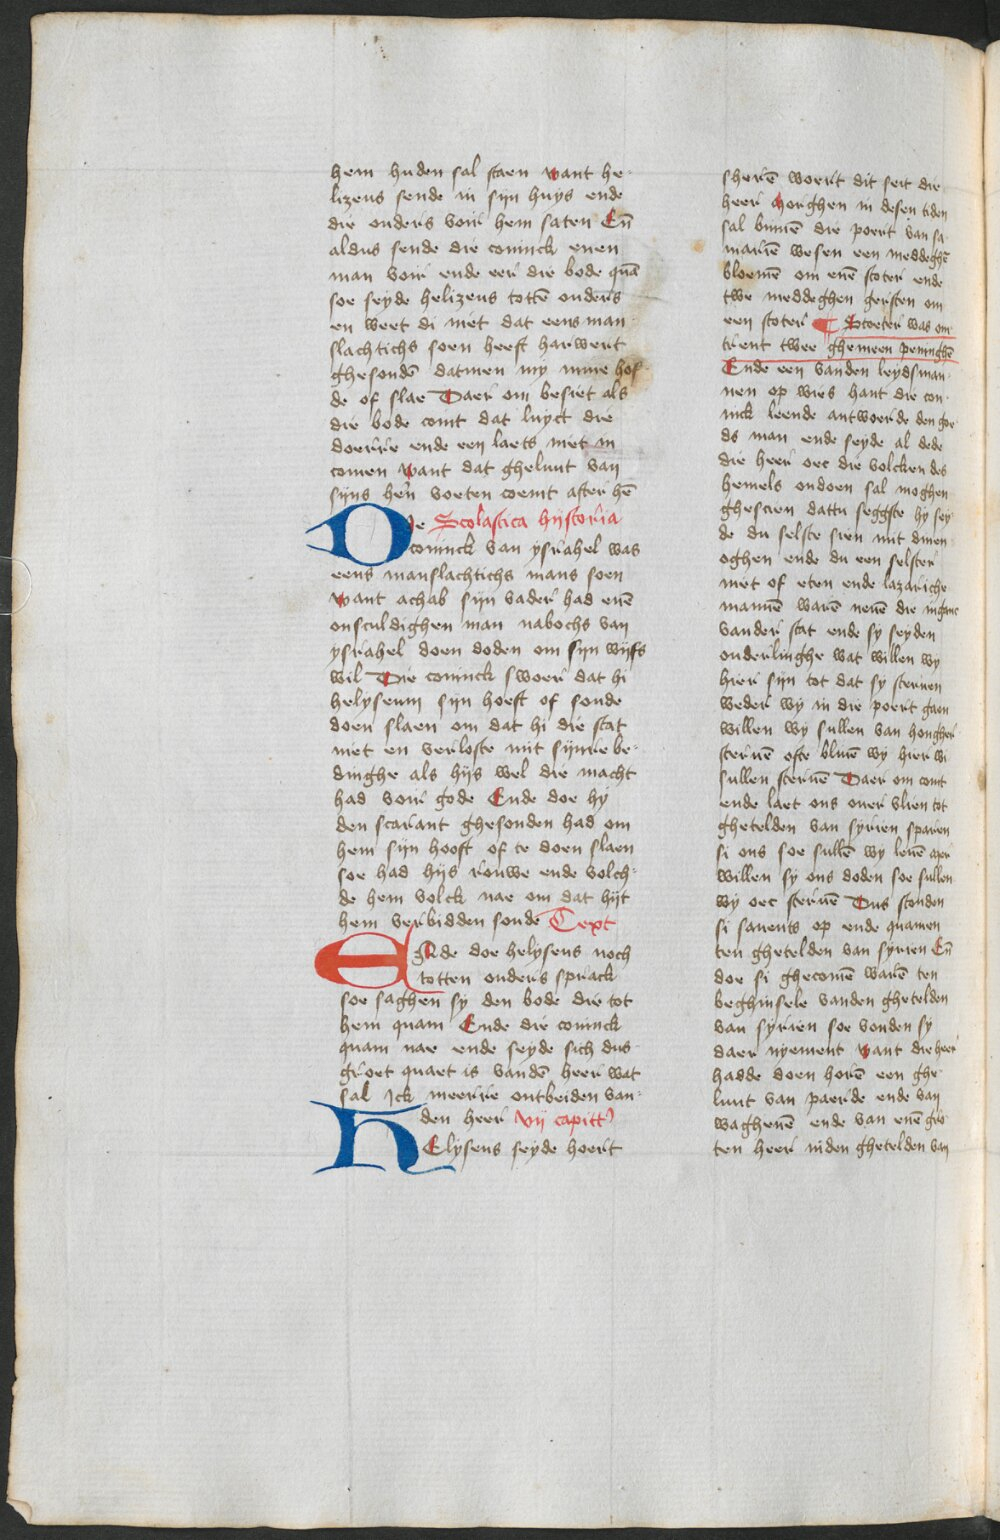 hem huden sal staen want he-
lizeus sende in sijn huys ende
die ouders voir hem saten Eñ
aldus sende die coninck enen
man voir ende eer die bode quā
soe seyde helizeus tottē ouders
en weet di niet dat eens man-
slachtichs soen heeft harwert
ghesondē datmen my mine hof-
de of slae Daer om besiet als
die bode comt dat luyct die
doerre ende een laets niet in
comen want dat gheluut van
sijns herē voeten coemt after hē
Die Scolastica hystoria
coninck van ysrahel was
eens manslachtichs mans soen
want achab sijn vader had enē
onsculdighen man nabochs van
ysrahel doen doden om sijn wijfs
wil Die coninck swoer dat hi
helyseum sijn hoeft of soude
doen slaen om dat hi die stat
niet en verloste mit sijnre be-
dinghe als hijs wel die macht
had voir gode Ende doe hy
den scariant ghesonden had om
hem sijn hooft of te doen slaen
soe had hijs rouwe ende volch-
de hem volck nae om dat hijt
hem verbidden soude Text
Ende doe helyseus noch
totten ouders sprack
soe saghen sy den bode die tot
hem quam Ende die coninck
quam nae ende seyde sich dus
groet quaet is vandē heer wat
sal Ick meerre ontbeiden van-
den heer vij capittē
HElyseus seyde hoert
sherē woert dit seit die
heer Morghen in desen tiden
sal binnē die poert van sa-
mariē wesen een meddeghē
bloemē om enē stoter ende
twe meddeghen gersten om
een stoter ¶ Stoeter was om-
trent twee ghemeen penninghē
Ende een vanden leydsman-
nen op wies hant die con-
inck leende antwoerde den goe-
ds man ende seyde al dede
die heer oec die volcken des
hemels ondoen sal moghen
ghescien dattu seggste hy sey-
de du selste sien mit dinen
oghen ende du een selster
niet of eten ende lazariche
mannē warē neuē die inganc
vander stat ende sy seyden
onderlinghe wat willen wy
hier sijn tot dat sy steruen
weder wy in die poert gaen
willen wy sullen van hongher
steruē ofte bliuē wy hier wi
sullen steruē Daer om comt
ende laet ons ouer vlien tot
ghetelden van syrien sparen
si ons soe sullē wy leuē aer
willen sy ons doden soe sullen
wy oec steruē Dus stonden
si sauents op ende quamen
ten ghetelden van syrien Eñ
doe si ghecomē warē ten
beghinsele vanden ghetelden
van syrien soe vonden sy
daer nyement want die heer
hadde doen horē een ghe-
luut van paerde ende van
waghenē ende van enē gro-
ten heer inden ghetelden van